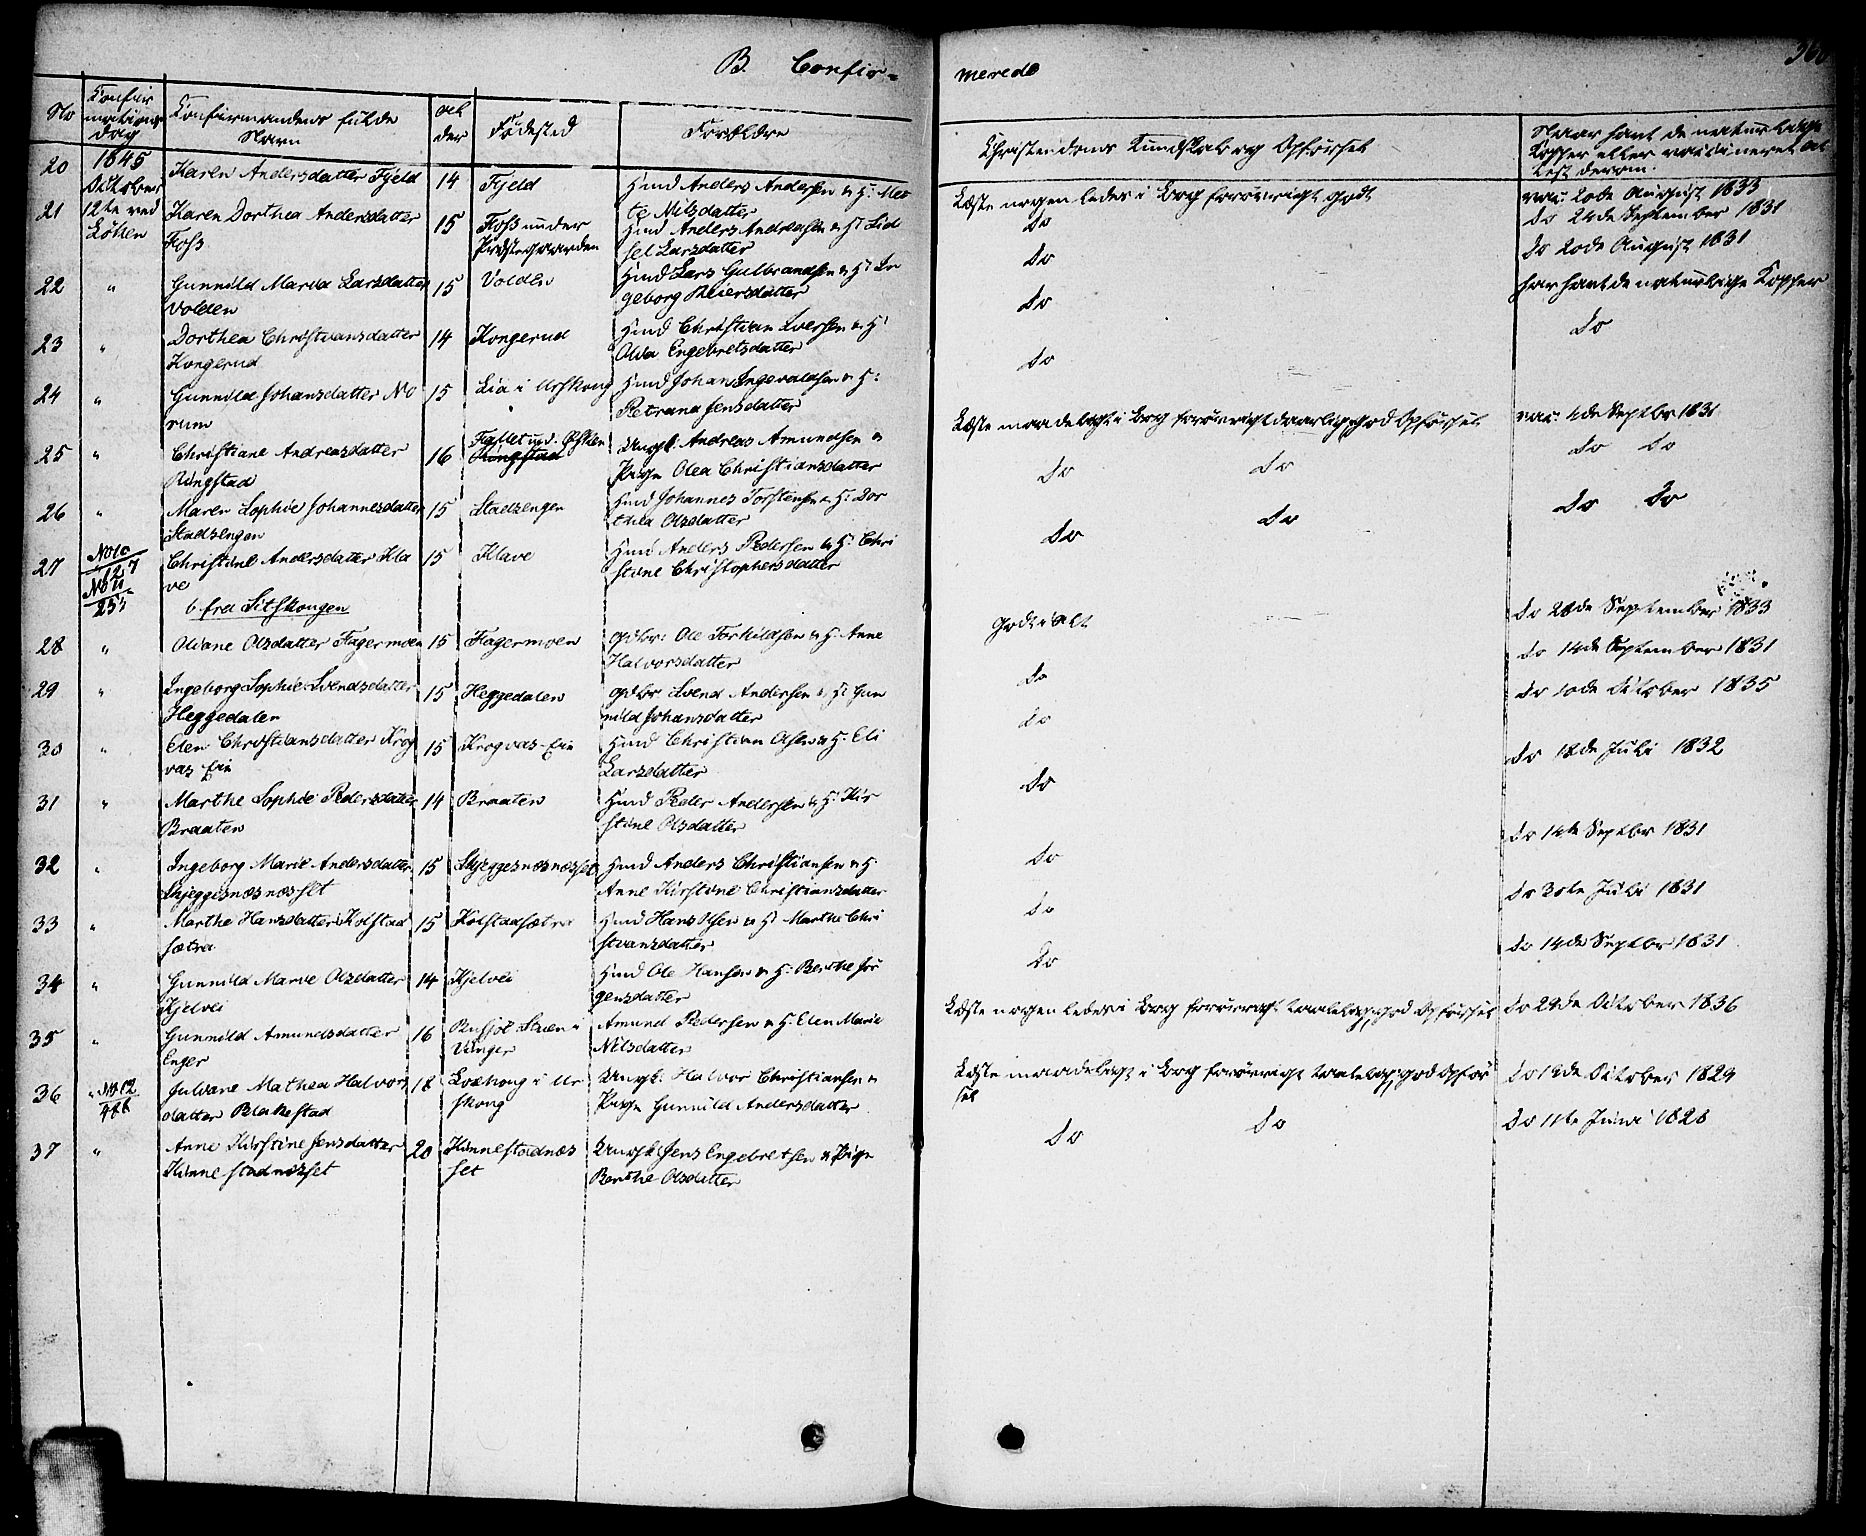 B. Confir-
merede
No
Confir
mations
dag
Confirmandens fulde
Navn
Al
der
Fødested
Forældre
Christendoms Kundskab og Opførsel
Naar havt de naturlige
Kopper eller vaccineret
20
1845
October
12te ved
Karen Andersdatter Fjeld
14
Fjeld
Hmd Anders Andersen & H:
te Nilsdatter
Læste nogenledes i Bog forøvrigt godt
vac. 20de August 1833
21
Karen Dorthea Andersdatter
Foss
15
Foss under
Præstegaarden
Hmd Anders Andreassen & H: Lid
sel Larsdatter
do
do 24de September 1831
22
"
Gunnild Maria Larsdatter
Volden
15
Volden
Hmd Lars Gulbrandsen & H: In
geborg Reiersdatter
do
do 20de August 1831
23
"
Dorthea Christiansdatter
Kongerud
14
Kongerud
Hmd Christian Iversen & H:
Olia Engebretsdatter
do
har havt de naturlige Kopper
24
"
Gunnild Johansdatter No
rum
15
Lia i Urskoug
Hmd Johan Ingevaldsen & H:
Petrana Jensdatter
do
do
25
"
Christiane Andreasdatter
Ringstad
16
Ringstad
Ungk. Andreas Amundsen &
Pige Olea Christiansdatter
Læste maadeligt i Bog forøvrigt daarlig, god Opførsel
vac. 4de Septbr 1831
26
"
Maren Sophie Johannesdatter
Stadsengen
15
Stadsengen
Hmd Johannes Torstensen & H: Dor
thea Olsdatter
do do
do do
27
No 10
127
No 11
255
Christine Andersdatter Kla
ve
15
Klave
Hmd Anders Pedersen & H: Chri
stine Christophersdatter
do do
do do
6 fra Sitskougen
28
"
Oliane Olsdatter Fagermoen
15
Fagermoen
Gdbr: Ole Torkildsen & H: Anne
Halvorsdatter
godt i alt
do 28de September 1833
29
"
Ingeborg Sophie Svendsdatter
Heggedalen
15
Heggedalen
Gdbr Svend Andersen & H: Gun
nild Johansdatter
do
do 14de September 1831
30
"
Elen Christiansdatter Krog
vas Eie
15
Krogvas-Eie
Hmd Christian Olsen & H: Eli
Larsdatter
do
do 10de October 1835
31
"
Marthe Sophie Pedersdatter
Braaten
14
Braaten
Hmd Peder Andersen & H: Kir
stine Olsdatter
do
do 18de Juli 1832
32
"
Ingeborg Marie Andersdatter
Skjeggesnæsnæsset
15
Skjeggesnæsnæsset
Hmd Anders Christiansen & H:
Anne Kirstine Christiansdatter
do
do 14de Septbr 1831
33
"
Marthe Hansdatter Kolstad
sætra
15
Kolstadsætra
Hmd Hans Olsen & H: Marthe Chri
stiansdatter
do
do 30te Juli 1831
34
"
Gunnild Marie Olsdatter
Kjelvei
14
Kjelvei
Hmd Ole Hansen & H: Berthe Jør
gensdatter
do
do 14de Septbr 1831
35
"
Gunnild Amundsdatter
Enger
16
Stuen i
Vinger
Amund Pedersen & H: Elen Marie
Nilsdatter
Læste nogenledes i Bog forøvrigt taalelig, god Opførsel
do 29de October 1836
36
" No 12
488
Juliane Mathea Halvors
datter Blakestad
18
i Ur
skoug
Ungk: Halvor Christiansen &
Pige Gunnild Andersdatter
Læste maadeligt i Bog forøvrigt taalelig, god Opfør
sel
do 19de October 1829
37
"
Anne Kirstine Jensdatter
Kinnestadnæsset
20
Kinnestadnæs
set
Ungk: Jens Engebretsen & Pige
Berthe Olsdatter
do do
do 11te Juni 1828